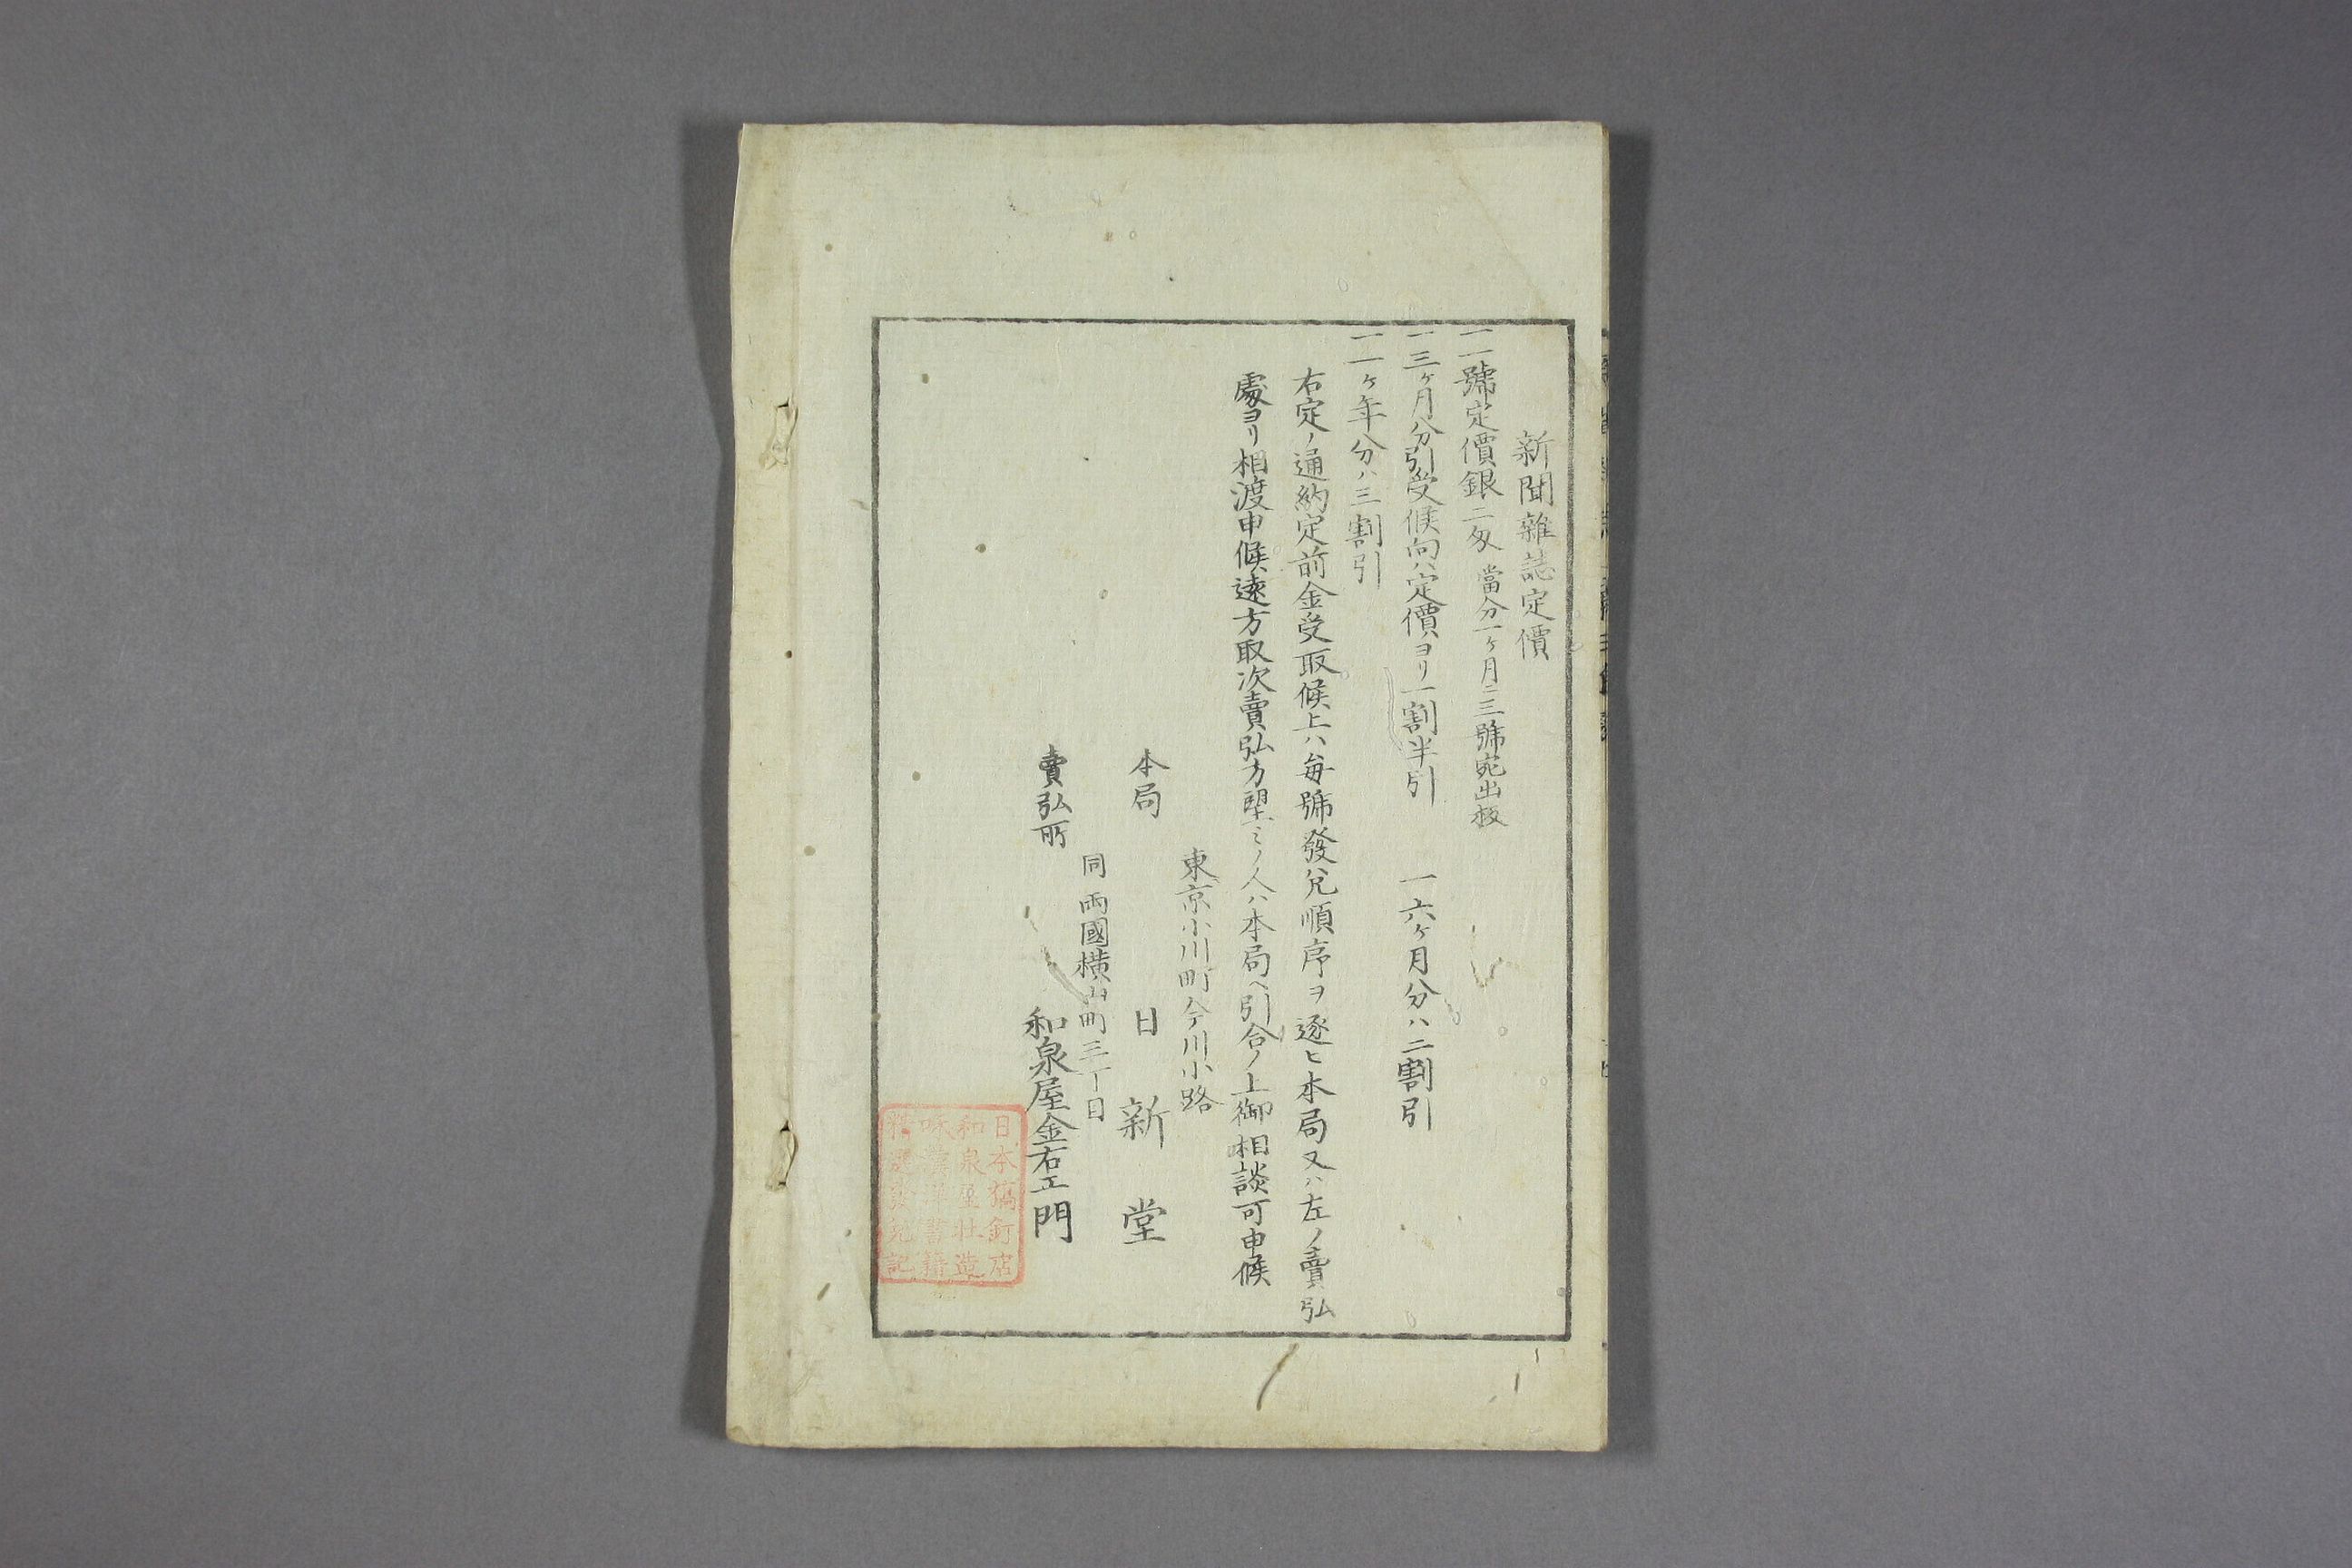 新聞雜誌定價
一一號定價銀二匁 當分一ケ月ニ三號宛出板
一三ケ月分引受候向ハ定價ヨリ一割半引 一六ケ月分ハ二割引
一一ケ年分ハ三割引
右定ノ通約定前金受取候上ハ每號發兌順序ヲ逐ヒ本局又ハ左ノ賣弘
處ヨリ相渡申候遠方取次賣弘方望ミノ人ハ本局ヘ引合ノ上御相談可申候
東京小川町今川小路
本局 日新堂
同兩國橫山町三丁目
賣弘所 和泉屋金右エ門
日本橋釘店
和泉屋壮造
漢洋書籍
發兌記